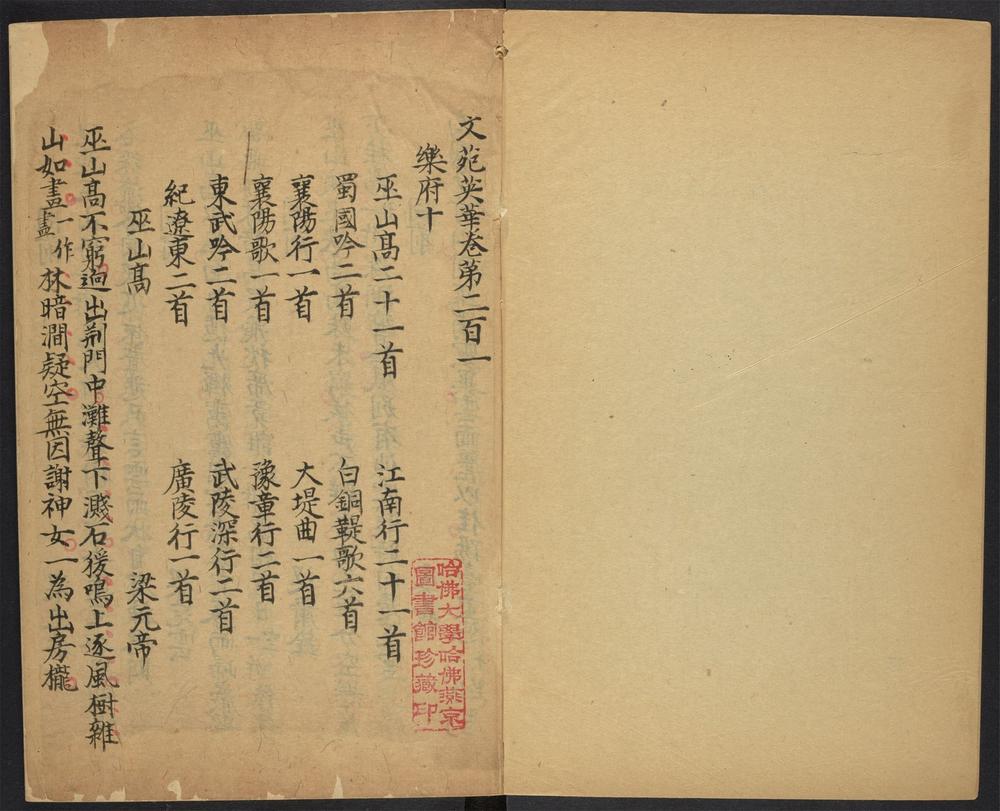 文苑英華卷第二百一
樂府十
巫山髙二十一首　江南行二十一首
蜀國吟二首　白銅鞮歌六首
襄陽行一首　大堤曲一首
襄陽歌一首　豫章行二首
東武吟二首　武陵深行二首
紀遼東二首　廣陵行一首
巫山髙　梁元帝
巫山髙不窮逈出荆門中灘聲下濺石猨鳴上逐風樹雜
山如畫一作畫林暗澗疑空無因謝神女一為出房櫳
哈佛大學哈佛燕京
圖書館珍藏印